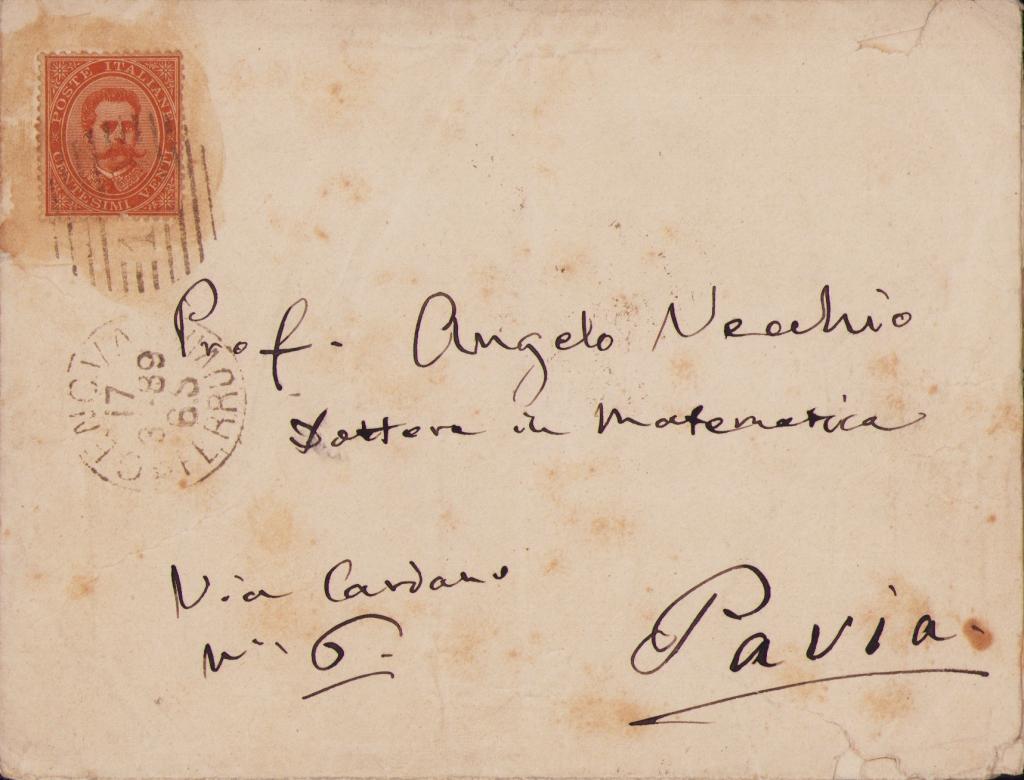 POSTE ITALIANE
CENTESIMI VENTI
1
GENOVA
17
3-89
6 S
FERROVIA
Prof. Angelo Vecchio
Dottore in Matematica
Via Cardano
N° 6.
Pavia.